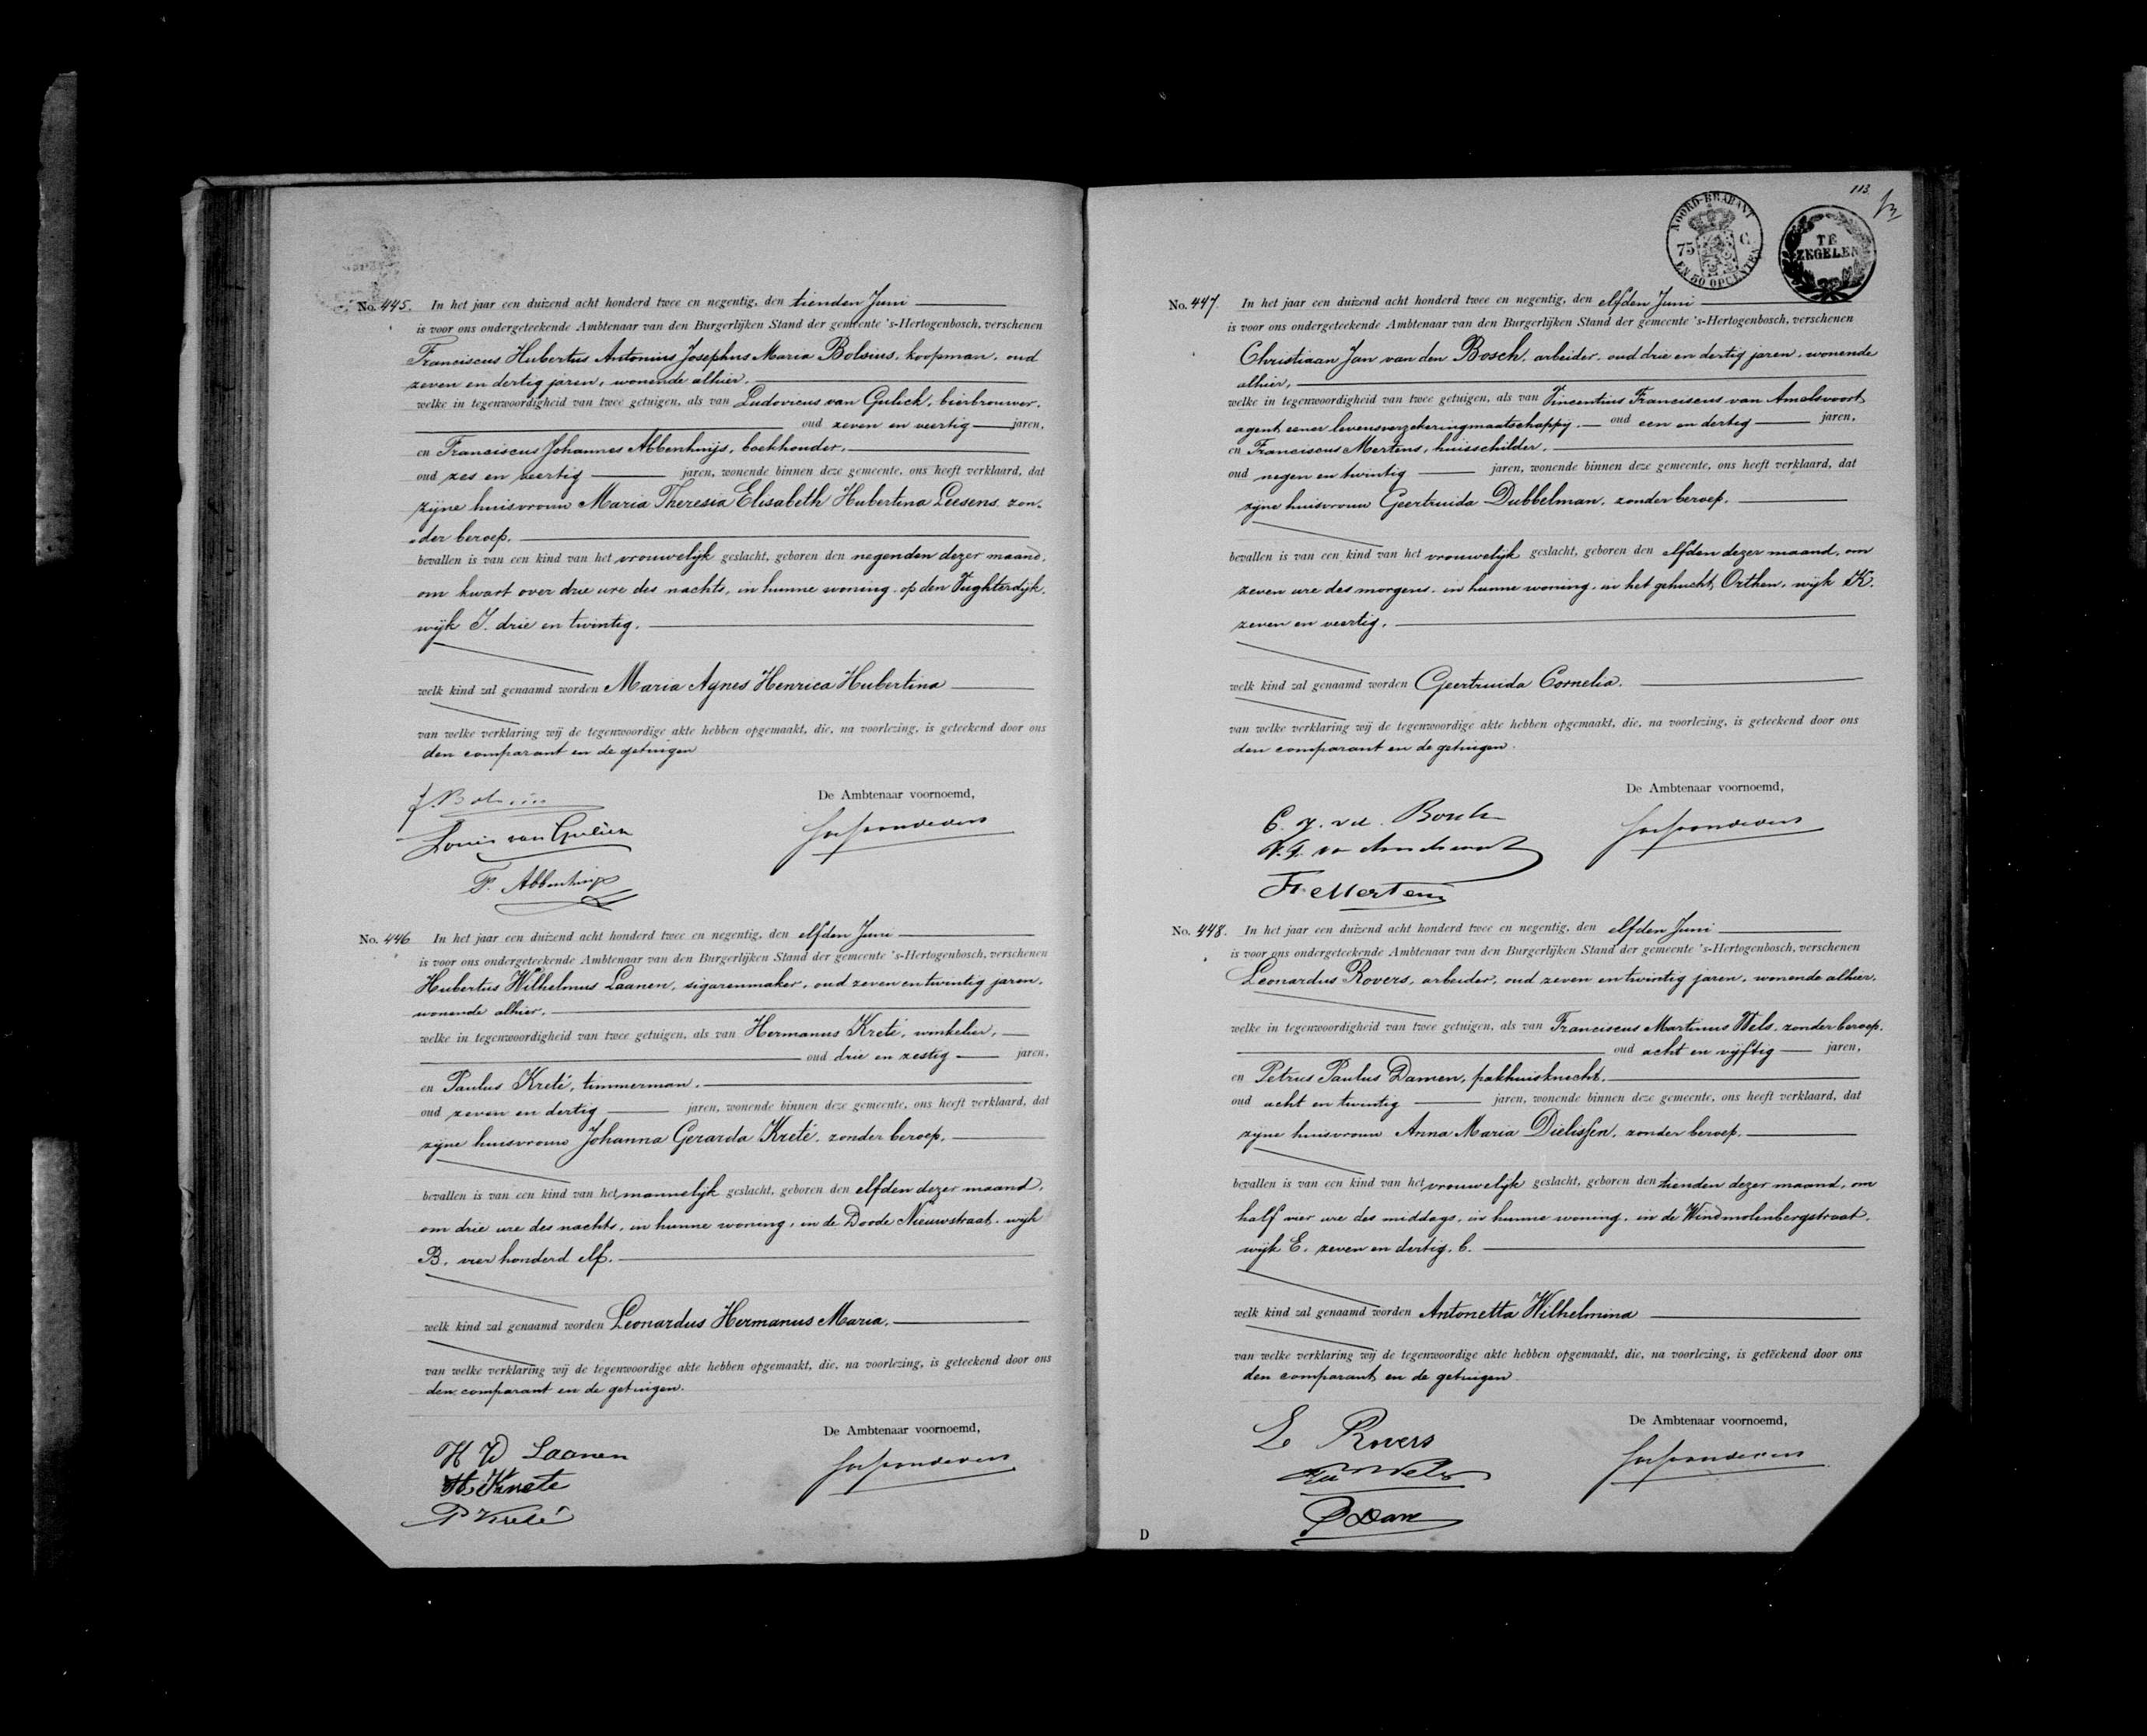 No. 445. In het jaar een duizend acht honderd twee en negentig, den tienden Juni
is voor ons ondergeteekende Ambtenaar van den Burgerlijken Stand der gemeente 's-Hertogenbosch, verschenen
Franciscus Hubertus Antonius Josephus Maria Bolsius, koopman, oud
zeven en dertig jaren, wonende alhier,
welke in tegenwoordigheid van twee getuigen, als van Ludovicus van Gulick, bierbrouwer,
oud zeven en veertig jaren,
en Franciscus Johannes Abbenhuijs, boekhouder,
oud zes en veertig jaren, wonende binnen deze gemeente, ons heeft verklaard, dat
zijne huisvrouw Maria Theresia Elisabeth Hubertina Leesens, zon-
der beroep,
bevallen is van een kind van het vrouwelijk geslacht, geboren den negenden dezer maand,
om kwart over drie ure des nachts, in hunne woning, op den Vughterdijk,
wijk I. drie en twintig,
welk kind zal genaamd worden Maria Agnes Henrica Hubertina
van welke verklaring wij de tegenwoordige akte hebben opgemaakt, die, na voorlezing, is geteekend door ons
den comparant en de getuigen
De Ambtenaar voornoemd,
F. Bolsius
Louis van Gulick
F. Abbenhuijs
No. 446 In het jaar een duizend acht honderd twee en negentig, den elfden Juni
is voor ons ondergeteekende Ambtenaar van den Burgerlijken Stand der gemeente 's-Hertogenbosch, verschenen
Hubertus Wilhelmus Laanen, sigarenmaker, oud zeven en twintig jaren,
wonende alhier,
welke in tegenwoordigheid van twee getuigen, als van Hermanus Kreté, winkelier,
oud drie en zestig jaren,
en Paulus Kreté, timmerman,
oud zeven en dertig jaren, wonende binnen deze gemeente, ons heeft verklaard, dat
zijne huisvrouw Johanna Gerarda Kreté, zonder beroep,
bevallen is van een kind van het mannelijk geslacht, geboren den elfden dezer maand,
om drie ure des nachts, in hunne woning, in de Doode Nieuwstraat, wijk
B. vier honderd elf,
welk kind zal genaamd worden Leonardus Hermanus Maria,
van welke verklaring wij de tegenwoordige akte hebben opgemaakt, die, na voorlezing, is geteekend door ons
den comparant en de getuigen.
De Ambtenaar voornoemd,
H W Laanen
H. Krete
P Kreté
113
NOORD-BRABANT
75 C.
EN 50 OPCENTEN
TE
ZEGELEN
No. 447. In het jaar een duizend acht honderd twee en negentig, den elfden Juni
is voor ons ondergeteekende Ambtenaar van den Burgerlijken Stand der gemeente 's-Hertogenbosch, verschenen
Christiaan Jan van den Bosch, arbeider, oud drie en dertig jaren, wonende
alhier,
welke in tegenwoordigheid van twee getuigen, als van Vincentius Franciscus van Amelsvoort
agent eener levensverzekeringmaatschappij, oud een en dertig jaren,
en Franciscus Mertens, huisschilder,
oud negen en twintig jaren, wonende binnen deze gemeente, ons heeft verklaard, dat
zijne huisvrouw Geertruida Dubbelman, zonder beroep,
bevallen is van een kind van het vrouwelijk geslacht, geboren den elfden dezer maand, om
zeven ure des morgens, in hunne woning, in het gehucht Orthen, wijk K.
zeven en veertig,
welk kind zal genaamd worden Geertruida Cornelia.
van welke verklaring wij de tegenwoordige akte hebben opgemaakt, die, na voorlezing, is geteekend door ons
den comparant en de getuigen.
De Ambtenaar voornoemd,
C. J. v d. Bosch
Fr Mertens
No. 448. In het jaar een duizend acht honderd twee en negentig, den elfden Juni
is voor ons ondergeteekende Ambtenaar van den Burgerlijken Stand der gemeente 's-Hertogenbosch, verschenen
Leonardus Rovers, arbeider, oud zeven en twintig jaren, wonende alhier,
welke in tegenwoordigheid van twee getuigen, als van Franciscus Martinus Wels, zonder beroep,
oud acht en vijftig jaren,
en Petrus Paulus Damen, pakhuisknecht,
oud acht en twintig jaren, wonende binnen deze gemeente, ons heeft verklaard, dat
zijne huisvrouw Anna Maria Dielissen, zonder beroep,
bevallen is van een kind van het vrouwelijk geslacht, geboren den tienden dezer maand, om
half vier ure des middags, in hunne woning, in de Windmolenbergstraat,
wijk E. zeven en dertig. b.
welk kind zal genaamd worden Antonetta Wilhelmina
van welke verklaring wij de tegenwoordige akte hebben opgemaakt, die, na voorlezing, is geteekend door ons
den comparant en de getuigen
De Ambtenaar voornoemd,
L Rovers
D